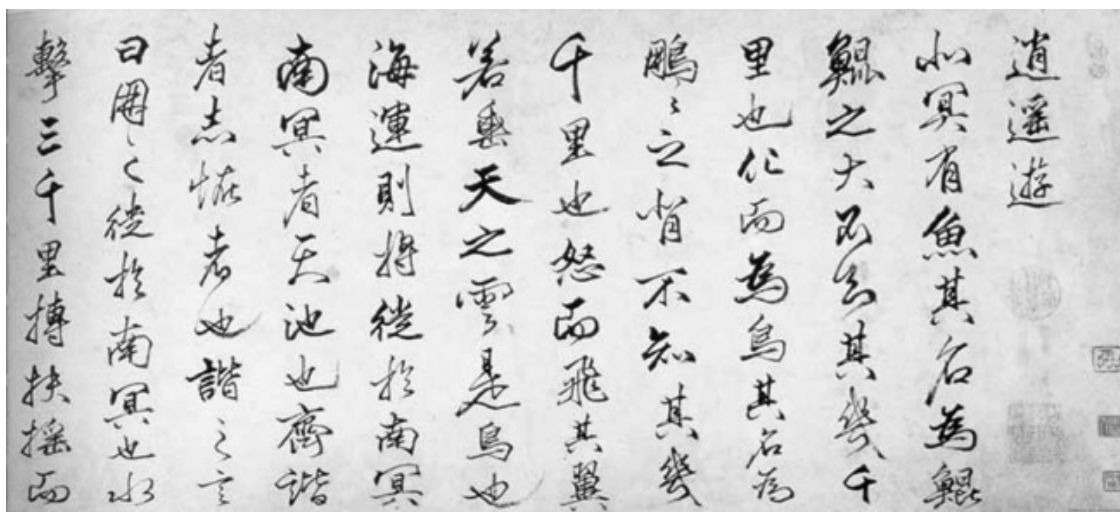 逍遥遊
北冥有魚其名為鯤
鯤之大不知其幾千
里也化而為鳥其名為
鵬〻之背不知其幾
千里也怒而飛其翼
若垂天之雲是鳥也
海運則將徙於南冥
南冥者天池也齊諧
者志恠者也諧之言
曰鵬之徙於南冥也水
擊三千里摶扶搖而